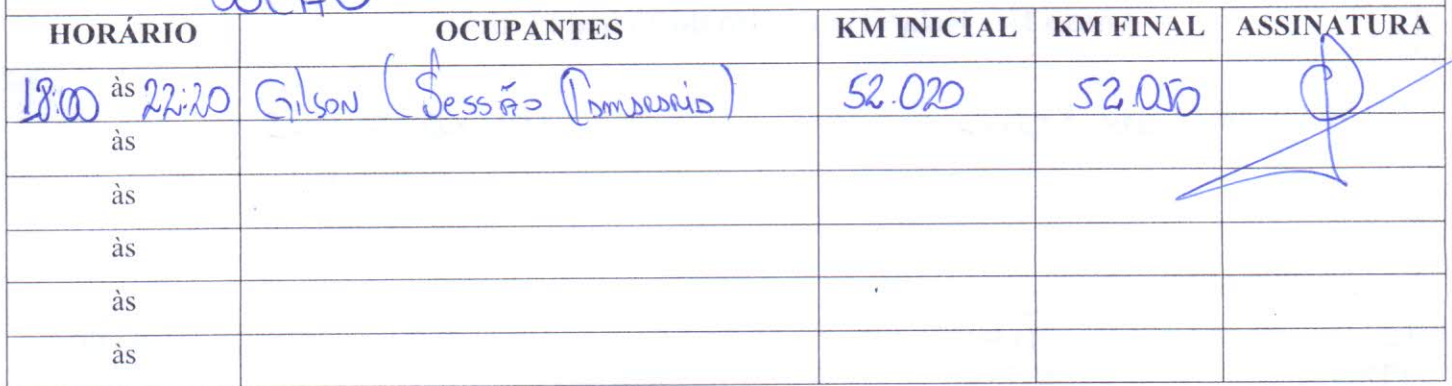 HORÁRIO OCUPANTES KM INICIAL KM FINAL ASSINATURA
18:00 às 22:20 Gilson (Sessão 52.020 52.050
às
às
às
às
às